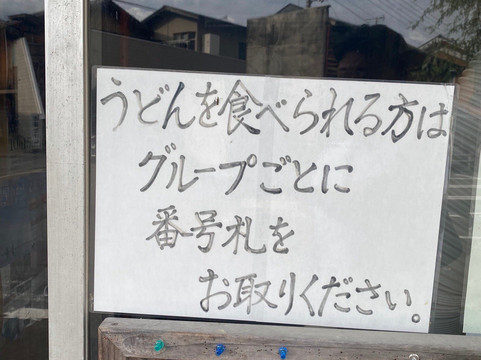 うどんを食べられる方は
グループごとに
番号札を
お取りください。